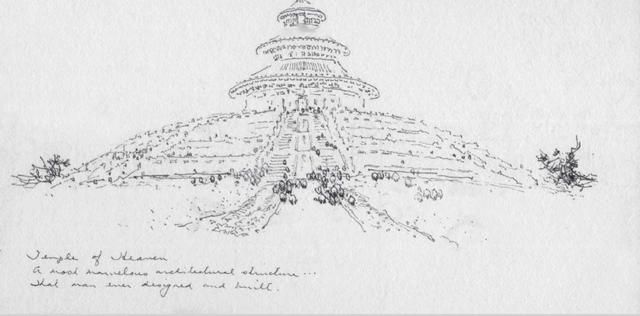 Temple of Heaven
A most marvelous architectural structure...
That man ever designed and built.